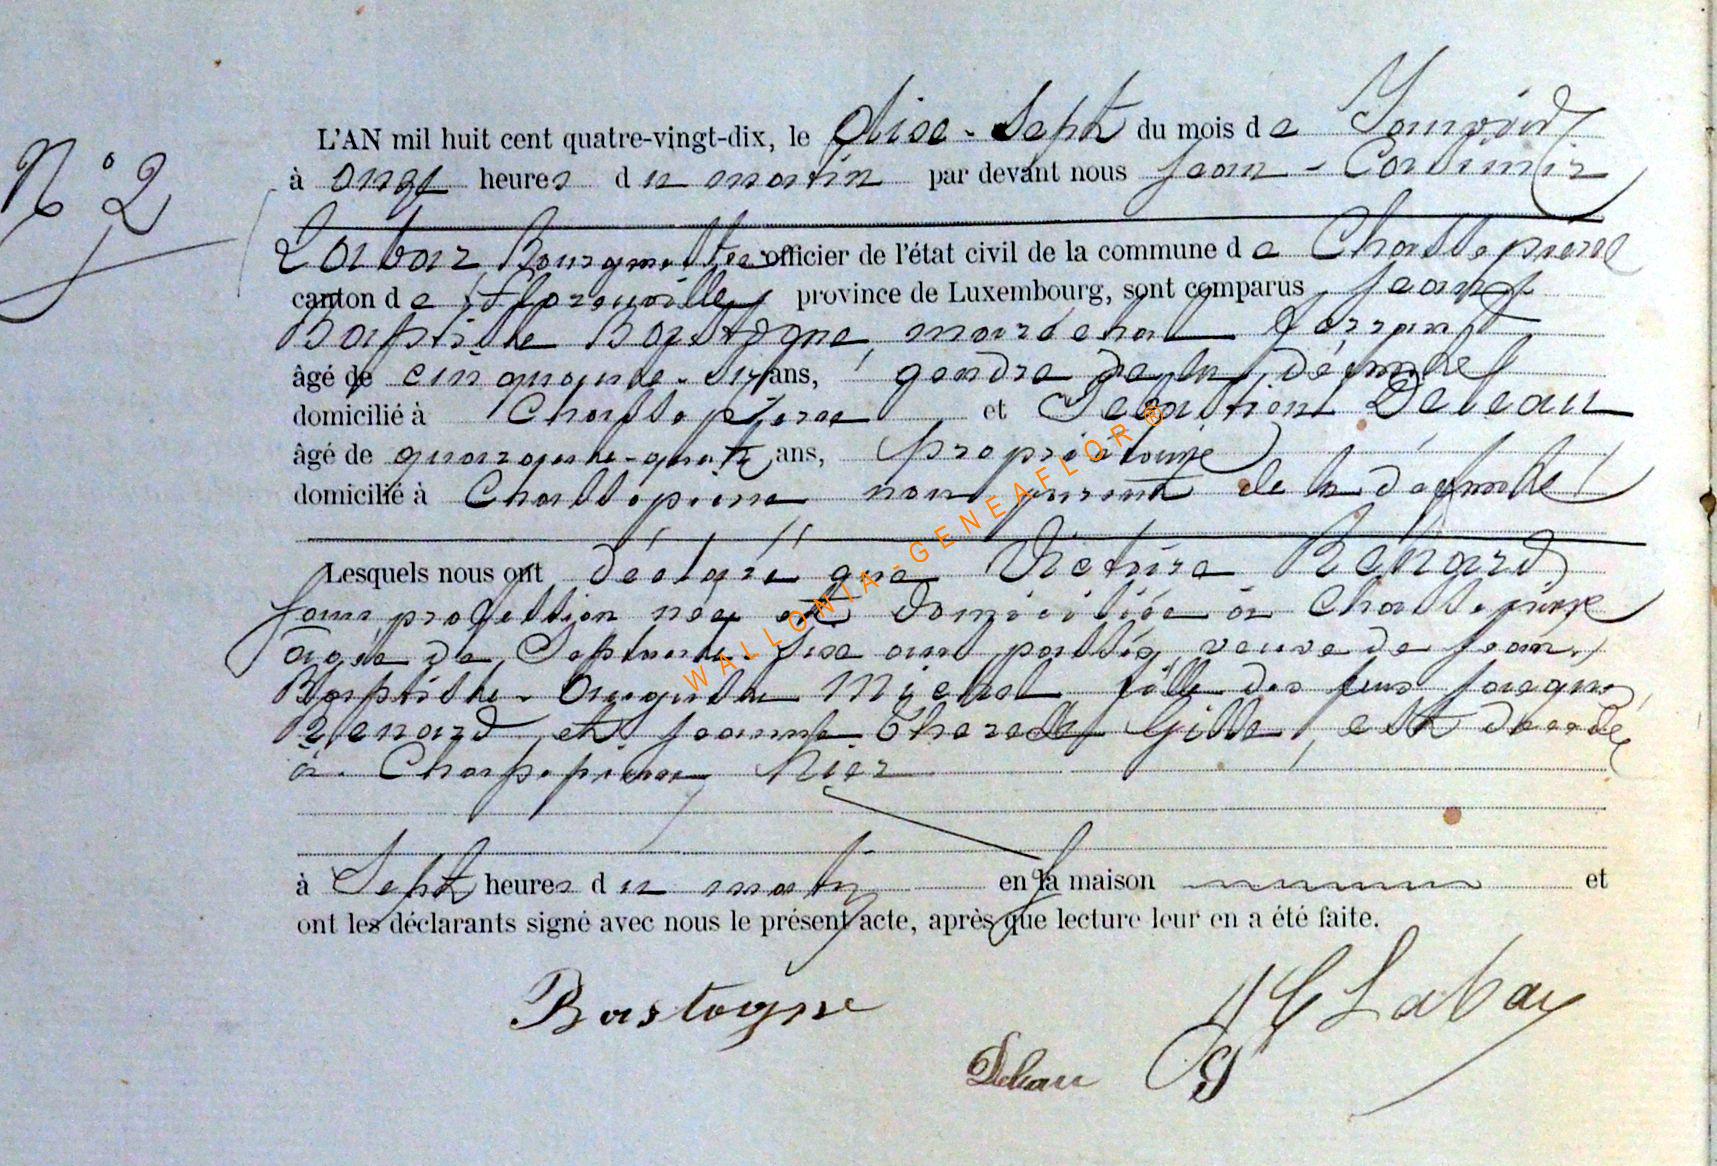 N° 2
L'AN mil huit cent quatre-vingt-dix, le dise-sept du mois de Janvier
à onze heures du matin par devant nous Jean-Casimir
Labar Bourgmestre officier de l'état civil de la commune de Chassepierre
canton de Florenville province de Luxembourg, sont comparus Jean
Baptiste Bastogne, maréchal ferrant
âgé de cinquante-six ans, gendre de la défunte
domicilié à Chassepierre et Sébastien Deleau
âgé de quarante-quatre ans, propriétaire
domicilié à Chassepierre non parent de la défunte
Lesquels nous ont déclaré que Victoire Renard
sans profession née et domiciliée à Chassepierre
agée de Septante-six ans passés, veuve de Jean
Baptiste-Augustin Michel fille des feus Jacques
Renard et Jeanne Therese Gille, est decedé
à Chassepierre hier
à Sept heures du matin en sa maison et
ont les déclarants signé avec nous le présent acte, après que lecture leur en a été faite.
Bastogne
JC Labar
Deleau
WALLONIA-GENEAFLOR®